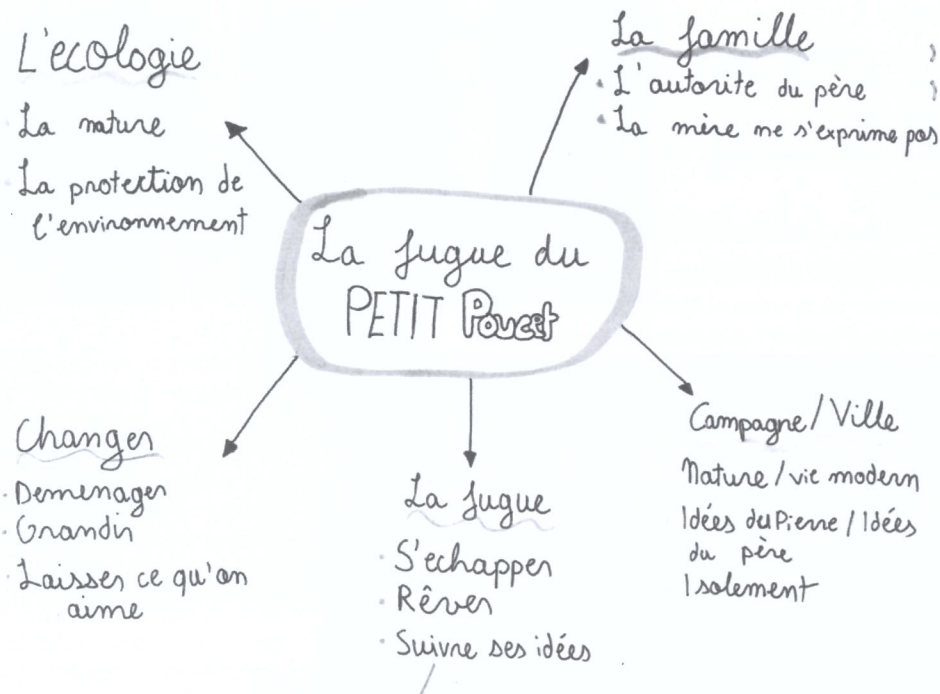 L'ecologie
La nature
La protection de
l'environnement
La famille
L'autorite du père
La mère ne s'exprime pas
La fugue du
PETIT Poucet
Changer
Demenager
Grandir
Laisser ce qu'on
aime
La fugue
S'echapper
Rêver
Suivre ses idées
Campagne/Ville
Nature/vie modern
Idées du Pierre/Idées
du père
Isolement